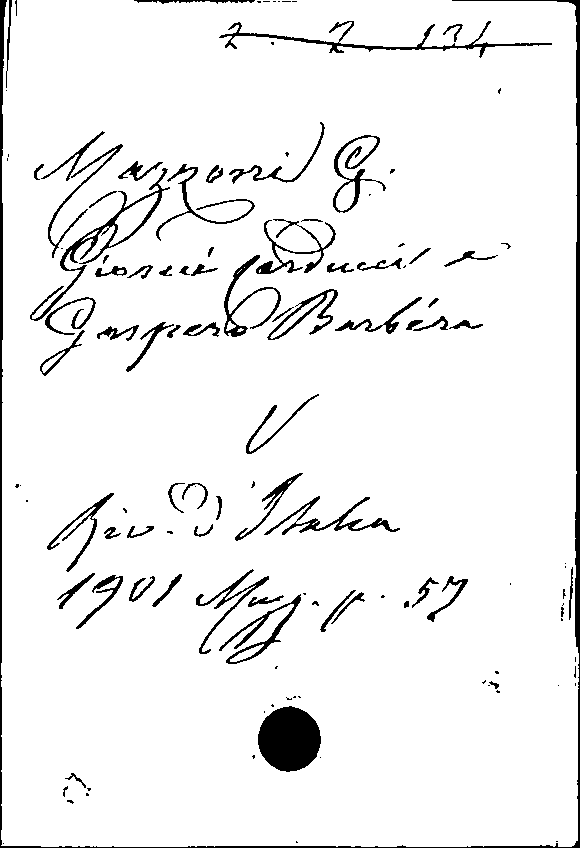 2. 2. 134
Mazzoni G.
Giosuè Carducci e
Gaspero Barbèra
V
Riv. d'Italia
1901 Magg. p. 57